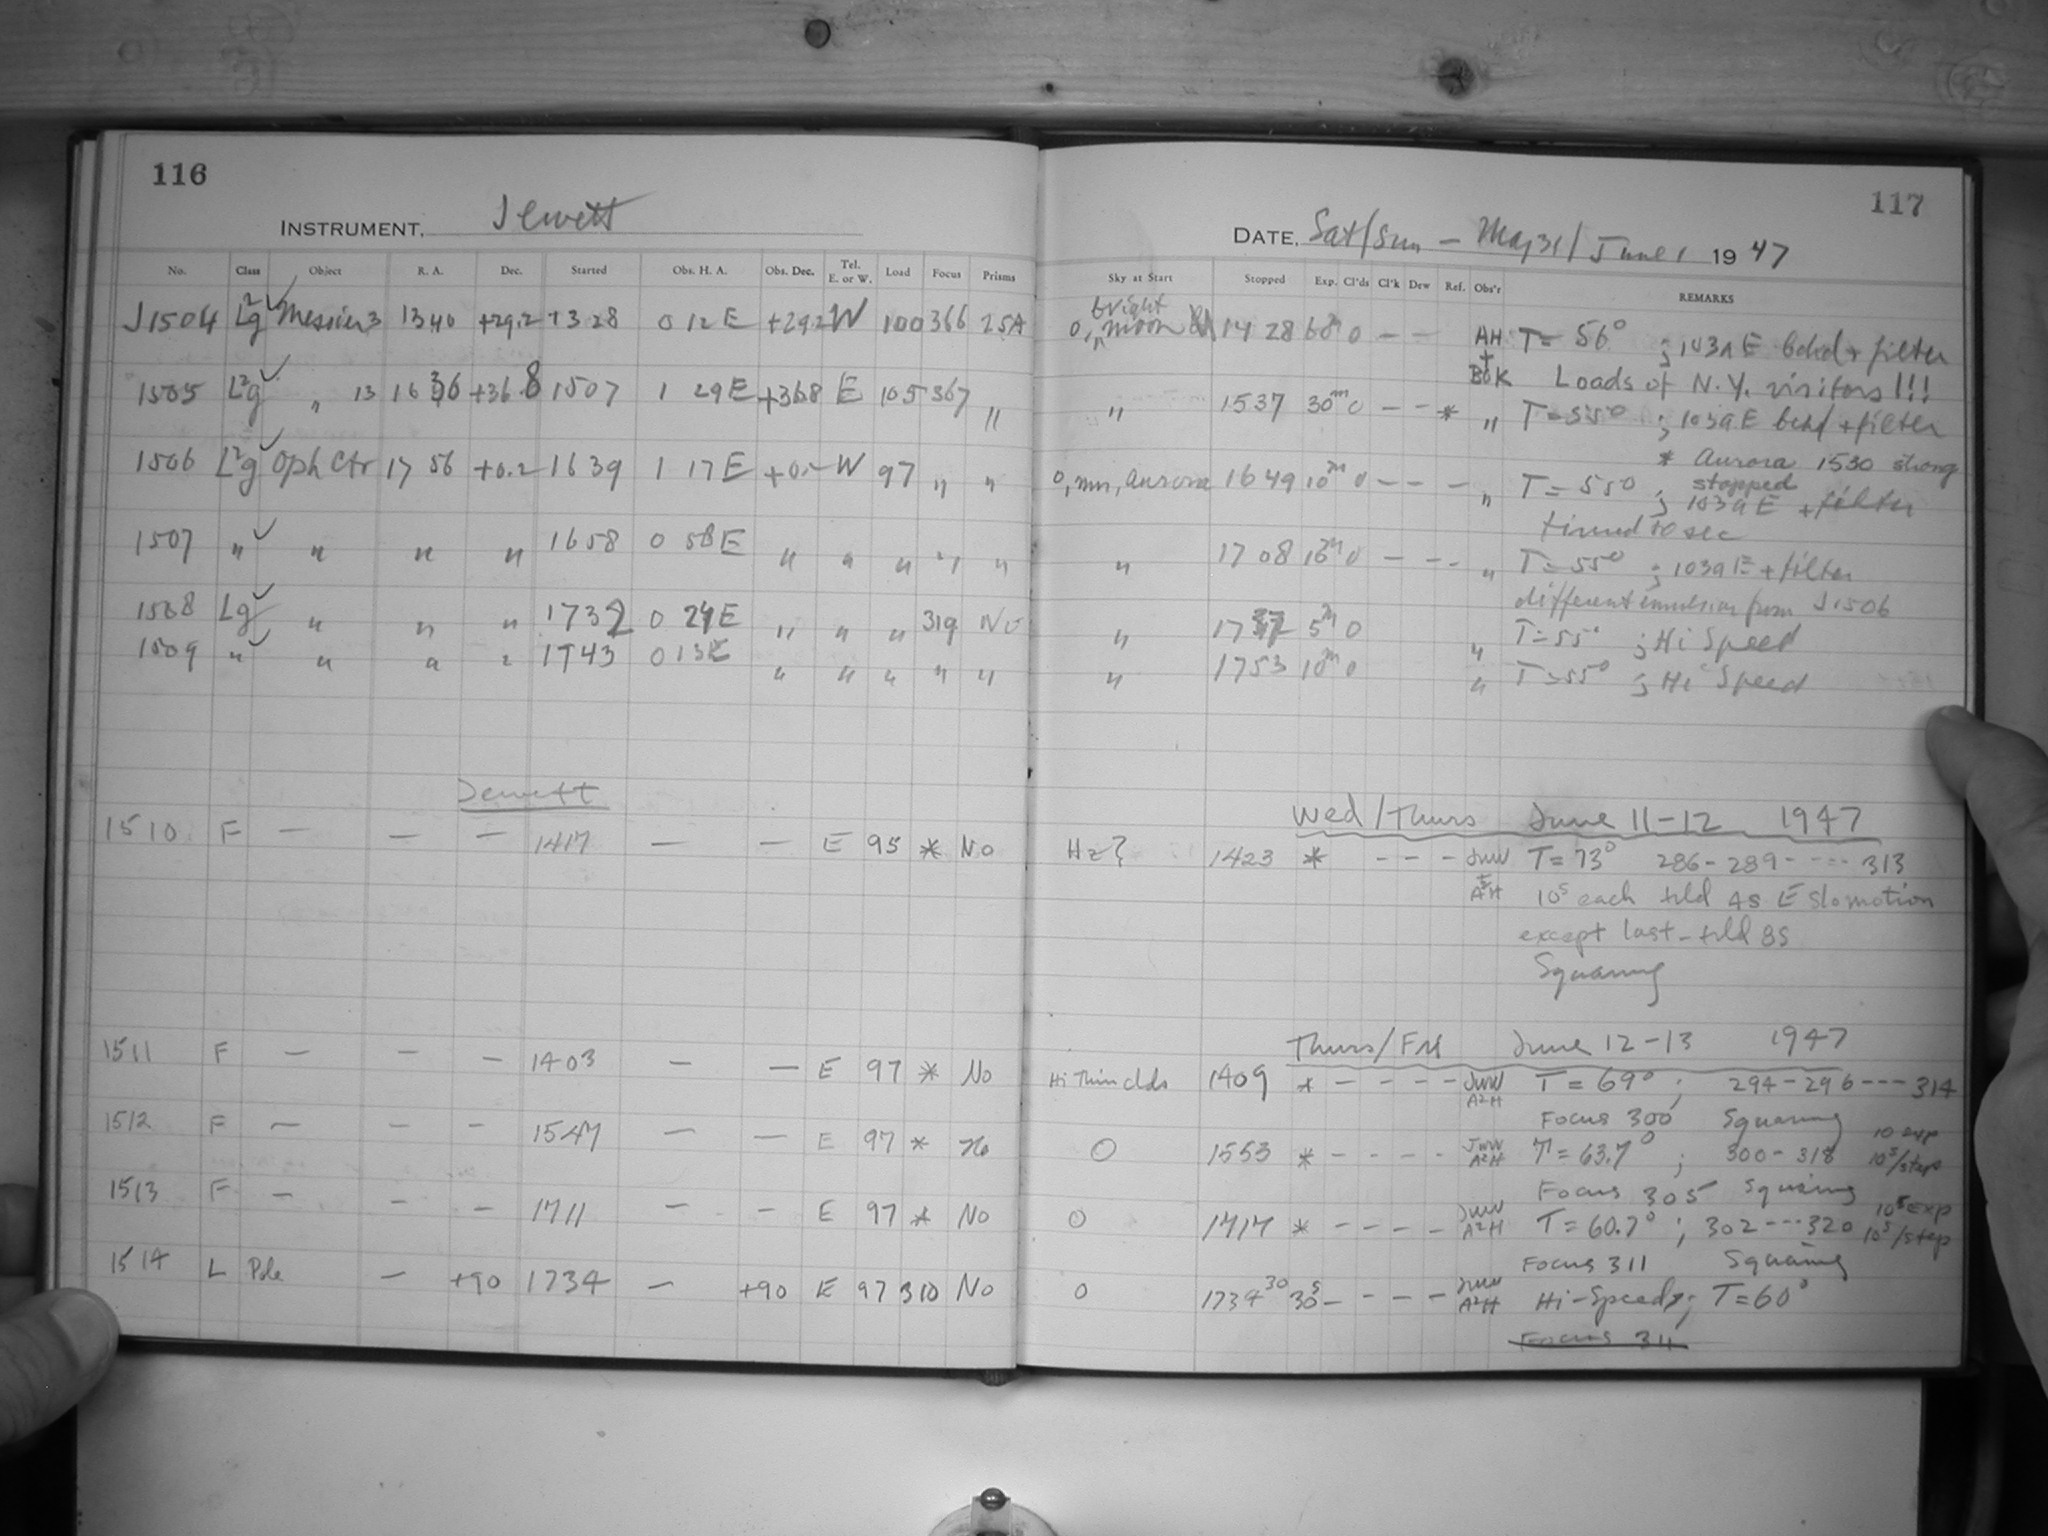 116
INSTRUMENT, Jewett
No. Class Object R. A. Dec. Started Obs. H. A. Obs. Dec. Tel. E. or W. Load Focus Prisms
J1504 L²g ✓ Messier 3 13 40 +29.2 13 28 0 12 E +29.2 W 100 366 25A
1505 L²g ✓ " 13 16 36 +36.8 1507 1 29 E +36.8 E 105 367 "
1506 L²g ✓ Oph Ctr 17 56 +0.2 1639 1 17 E +0.2 W 97 " "
1507 " ✓ " " " 1658 0 58 E " " " " "
1508 Lg ✓ " " " 1732 0 24 E " " " 319 No
1509 " ✓ " " " 1743 0 13 E " " " " "
Jewett
1510 F — — — 1417 — — E 95 * No
1511 F — — — 1403 — — E 97 * No
1512 F — — — 1547 — — E 97 * No
1513 F — — — 1711 — — E 97 * No
1514 L Pole — +90 1734 — +90 E 97 310 No
117
DATE, Sat/Sun - May 31/June 1 1947
Sky at Start Stopped Exp. Cl'ds Cl'k Dew Ref. Obs'r REMARKS
bright
0, moon 14 28 60m 0 — — AH T = 56° ; 103aE bckd + filter
+
BOK Loads of N.Y. visitors!!!
" 1537 30m 0 — — * " T = 55° ; 103aE bckd + filter
* Aurora 1530 strong
stopped
0, mn, aurora 1649 10m 0 — — — " T = 55° ; 103aE + filter
timed 10 sec
" 1708 10m 0 — — — " T = 55° ; 103aE + filter
different emulsion from J1506
" 1737 5m 0 " T = 55° ; Hi Speed
" 1753 10m 0 " T = 55° ; Hi Speed
Wed/Thurs June 11-12 1947
Hz? 1423 * - - - JWW T = 73° 286-289- ---- 313
+
A²H 10s each tild 4s E Slo motion
except last - tild 8s
Squaring
Thurs/Fri June 12-13 1947
Hi Thin clds 1409 * - - - - JWW A²H T = 69° ; 294-296 --- 314
Focus 300 Squaring
0 1553 * - - - - JWW A²H T = 63.7° ; 300-318 10 exp 10s/step
Focus 305 Squaring
0 1717 * - - - - JWW A²H T = 60.7° ; 302---320 10s Exp 10s/step
Focus 311 Squaring
0 1734 30 30s — - - - - JWW A²H Hi-Speed; T = 60°
Focus 311